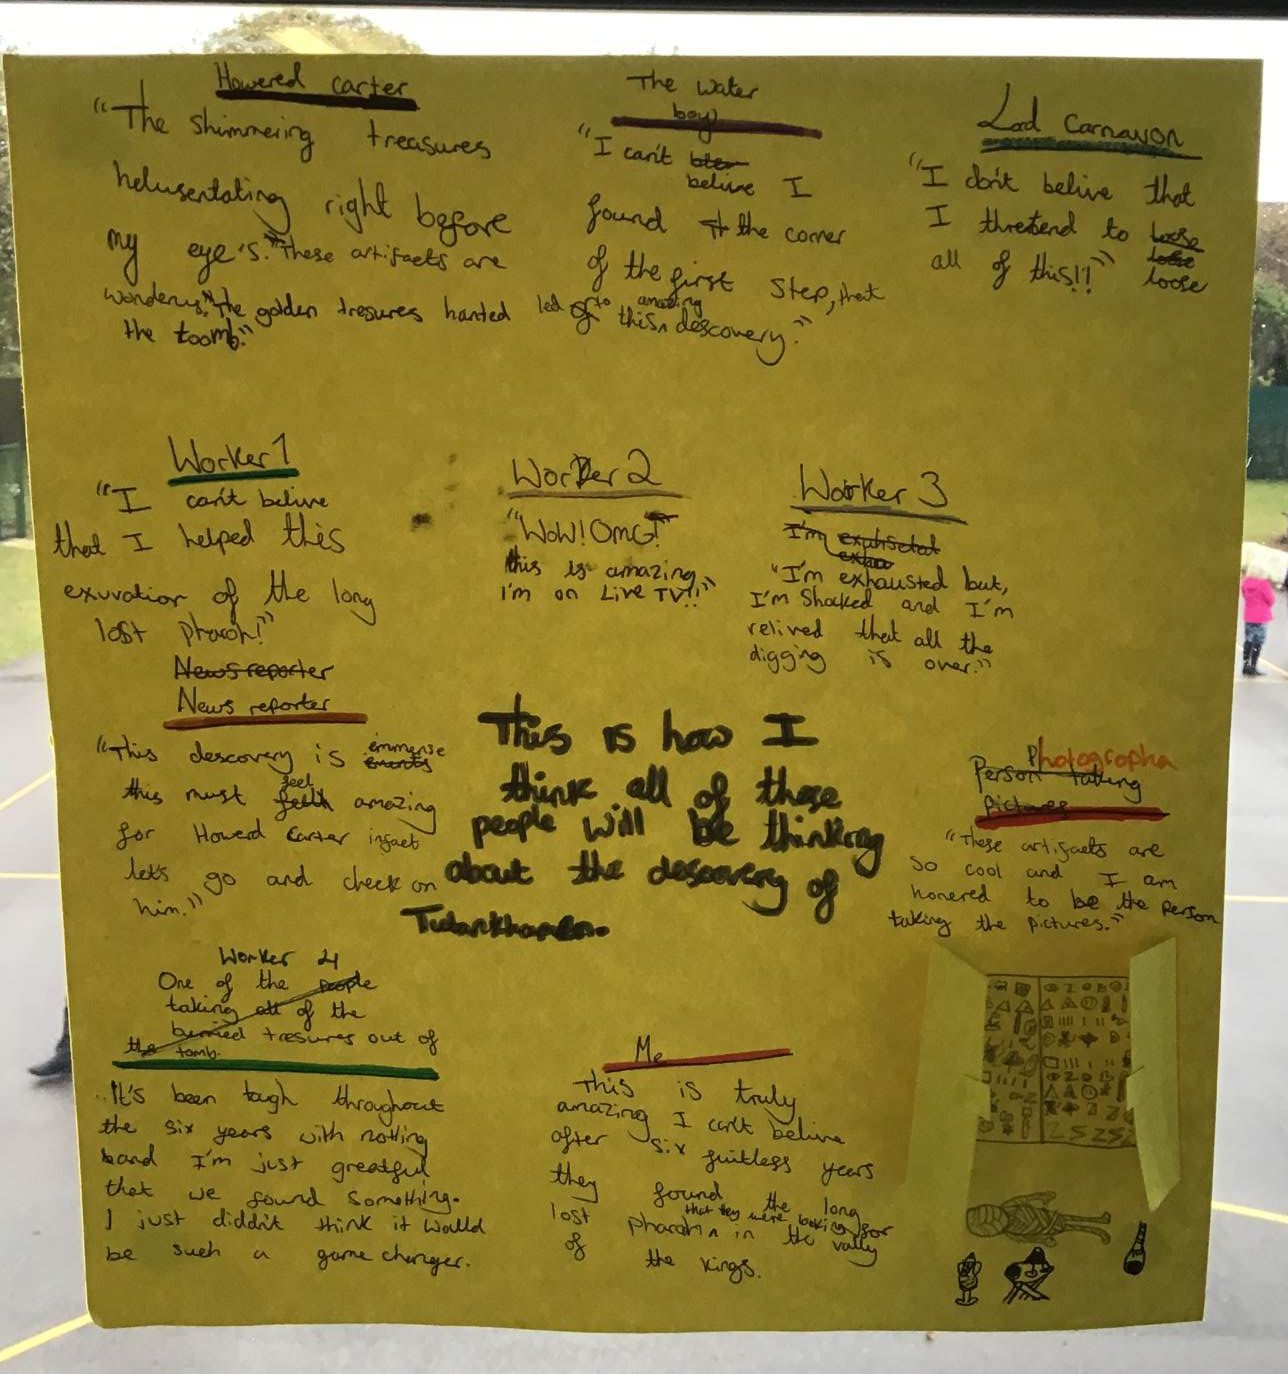 Howered carter
"The shimmering treasures
helusentating right before
my eye's." "These artifacts are
wonderus." "The golden tresures hanted
the toomb."
The water
boy
"I can't
belive I
found the corner
of the first step, that
led to this amazing descovery."
Lord Carnavon
"I don't belive that
I thretend to loose
all of this!!"
Worker 1
"I can't belive
that I helped this
exuvation of the long
lost pharoh!"
Worker 2
"WOW! OMG!
this is amazing
I'm on Live TV!!"
Worker 3
"I'm exhausted but,
I'm Shocked and I'm
relived that all the
digging is over."
News reporter
News reporter
"This descovery is emmense
this must feel amazing
for Howerd Carter infact
let's go and check on
him."
This is how I
think all of these
people will be thinking
about the descovery of
Tutankhamen.
Photographa
Person taking
pictures
"These artifacts are
so cool and I am
honered to be the person
taking the pictures."
Worker 4
One of the people
taking all of the
burried tresures out of
the tomb.
It's been tough throughout
the six years with notting
band I'm just greatful
that we found something.
I just diddn't think it would
be such a game changer.
Me
This is truly
amazing I can't belive
after six fuitless years
they found the long
lost pharoh that they were looking for in the vally
of the kings.